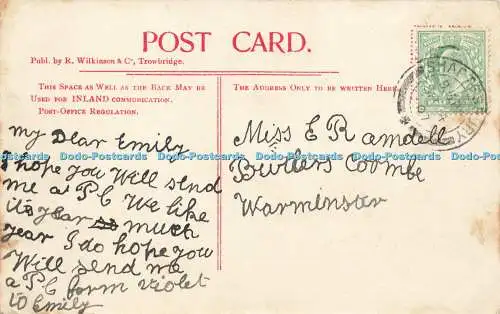 POST CARD.
Publ. by R. Wilkinson & Co, Trowbridge.
THIS SPACE AS WELL AS THE BACK MAY BE
USED FOR INLAND COMMUNICATION.
POST-OFFICE REGULATION.
THE ADDRESS ONLY TO BE WRITTEN HERE.
SHAFTESBURY
my Dear Emily
I hope you Will send
me a P.C We like
it year so much
year I do hope you
Will send me
a P.C form violet
to Emily
Miss E Ramdell
Butlers Coombe
Warminster
Dodo-Postcards Dodo-Postcards Dodo-Postcards Dodo-Postcards Dodo-Postcards